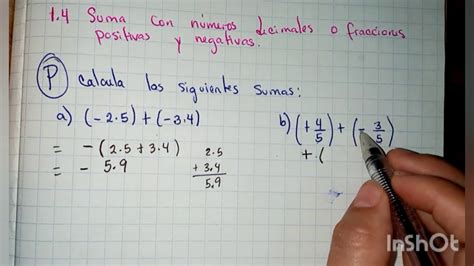 1.4 Suma con números decimales o fracciones
positivas y negativas.
P Calcula las siguientes sumas:
a) (-2.5) + (-3.4)
= -(2.5 + 3.4)
= - 5.9
2.5
+ 3.4
5.9
b) (+ 4/5) + (- 3/5)
+ · (
InShOt